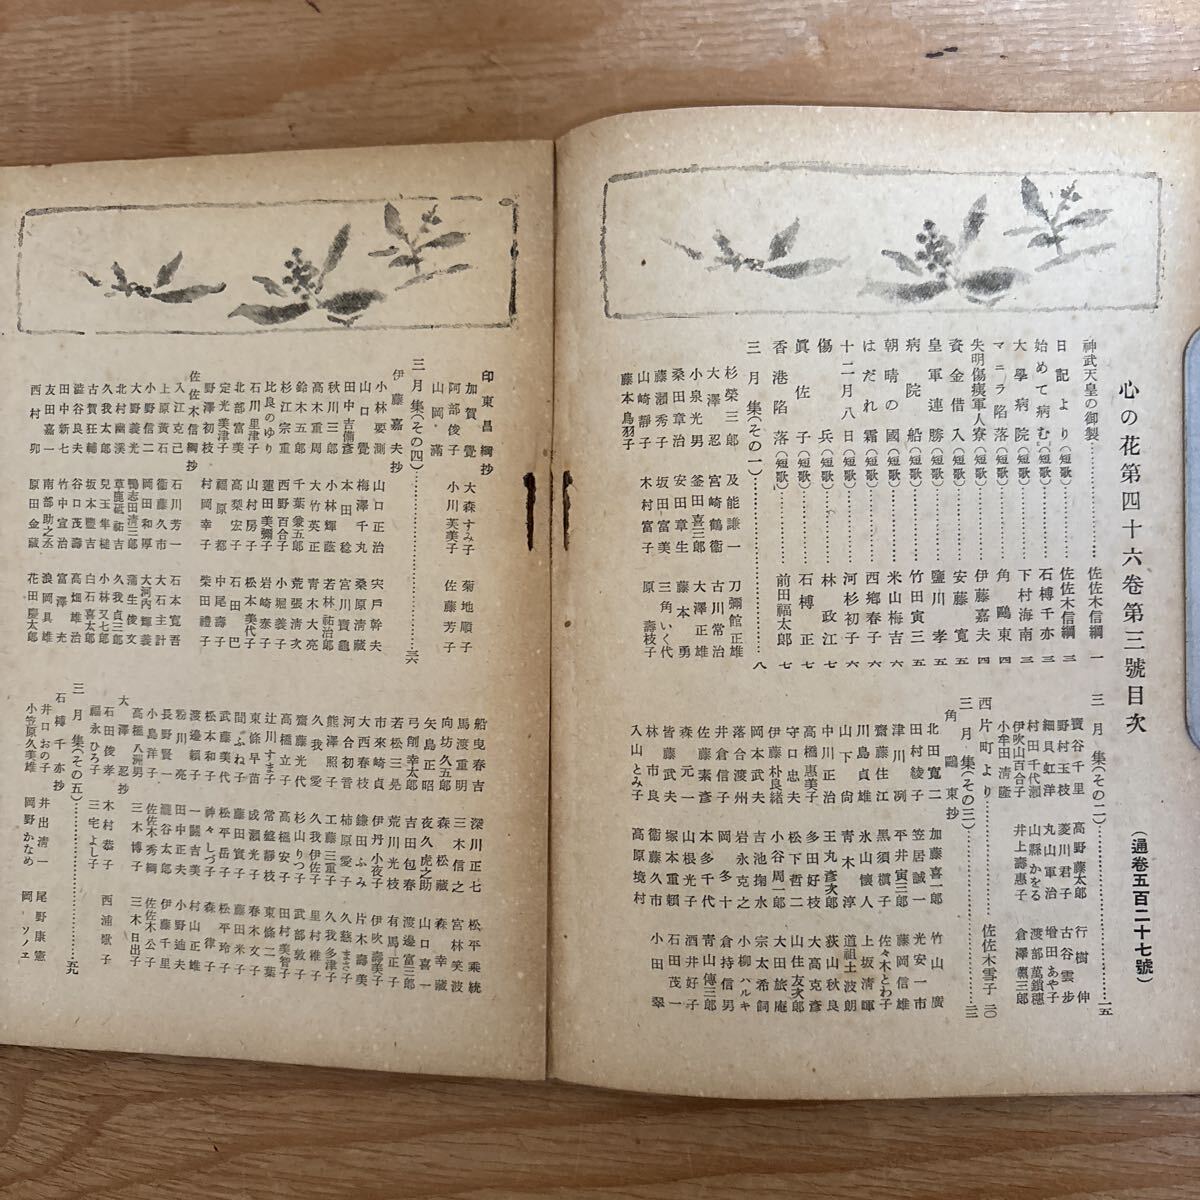 心の花第四十六卷第三號目次
（通卷五百二十七號）
神武天皇の御製…………佐佐木信綱 一
日記より（短歌）…………佐佐木信綱 三
始めて病む（短歌）…………石榑千亦 三
大學病院（短歌）…………下村海南 三
マニラ陷落（短歌）…………角鷗東 四
失明傷痍軍人寮（短歌）…………伊藤嘉夫 四
資金借入（短歌）…………安藤寬 五
皇軍連勝（短歌）…………鹽川孝 五
病院船（短歌）…………竹田寅三 五
朝晴の國（短歌）…………米山梅吉 六
はだれ霜（短歌）…………西鄕春子 六
十二月八日（短歌）…………河杉初子 六
傷兵（短歌）…………林政江 七
眞佐子（短歌）…………石榑正 七
香港陷落（短歌）…………前田福太郎 七
三月集（その一）…………八
杉榮三郎 及能謙一 刀彌館正雄
大澤忍 宮崎鶴衞 古川常治
小泉光男 釜田喜三郎 大澤正雄
桑田章治 安田章生 藤本勇
藤瀨秀子 坂田富美 三角いく代
山崎靜子 木村富子 原壽枝子
藤本鳥羽子
三月集（その二）…………一五
寶谷千里 高野藤太郎 行樹伸
野村玉枝 菱川君子 古谷雲步
細貝虹洋 丸山軍治 增田あや子
村田千代瀨 山縣かをる 渡部萬鎖穗
伊吹山百合子 井上壽惠子 倉澤薰三郎
小牟田淸隆
西片町より…………佐佐木雪子 二〇
三月集（その三）…………二二
角鷗東抄
北田寬二 加藤喜一郎 竹山廣
田村綾子 笠居誠一 光安一市
津川冽 平井寅三郎 藤岡信雄
齋藤佳江 黑須檳子 佐々木とわ子
川島貞雄 氷山懷人 上坂淸暉
山下尙 靑木淳 道祖土波朗
中川正治 王丸彥次郎 荻山秋良
高橋惠美子 多田好子 大高克彥
守口忠夫 松下哲二 山住友次郎
伊藤朴良緖 小谷周一 大田旅庵
岡本武夫 吉池掬水 宗太希飼
落合渡州 岩永克之 小柳ハルキ
井倉信子 岡多十 倉持信男
佐藤素彥 本多千代 靑山傳三郎
森元一 山根光子 酒井好子
皆藤武夫 塚本重賴 石田茂一
林市良 衞藤久市 小田翠
入山とみ子 高原境村
印東昌綱抄
加賀覺 大森すみ子 菊地順子
阿部俊子 小川芙美子 佐藤芳子
山岡滿
三月集（その四）…………三六
伊藤嘉夫抄
小林要測 山口正治 宍戶幹夫
山口覺 梅澤千丸 桑原淸藏
田中吉備彥 本田稔 宮川寶龜
秋川三郎 小林輝蔭 若林祐治郎
高木重周 大竹英正 靑木大亮
鈴木五郎 千葉彙五郎 荒張淸次
杉江宗重 西野百合子 小堀義子
比良のゆり 蓮田美彌子 岩崎泰子
石川里津子 山村房子 松本美代子
北部富美 高梨宏子 石田巴
定光美津子 福原都 中尾壽子
野澤初枝 村岡幸子 柴田禮子
佐佐木信綱抄
入江克己 石川芳一 石本寬吾
上原黃石 衞藤久市 大石主計
小野信二 岡田和厚 大河內輝義
大野義光 鴨志田淸三郎 蒲生俊文
北村幽溪 草鹿砥祐吉 久我貞三郎
久我太郎 兒玉隼槌 小林又七郎
古賀狂輔 坂本豐吉 白石喜太郎
澁谷良夫 谷口茂壽 高畑雄治
田中新七 竹中宣治 富澤充
友田嘉一 南部助之丞 浪岡具雄
西村卯 原田金藏 花田慶太郎
船曳春吉 深川正七 松平乘統
馬渡重明 三木信之 宮林笑波
向坊久五郎 森松藏 森幸藏
矢島正昭 夜久虎之助 山口喜一
弓削幸太郎 吉田包春 渡邊富三郎
若松三晃 荒川光枝 有馬正子
市來崎貞 伊丹小夜子 伊吹壽美子
大西春枝 鎌田ふみ 片木壽美
河合初音 柿原愛子 久慈まさ子
熊澤照子 工藤三重子 久我多津子
久我愛 久我伊佐子 里村雅子
齋藤光代 杉山りつ子 武部敦子
高橋立子 高橋安子 田村美智子
辻川すま子 常盤靜枝 東條二葉
東條早苗 成瀨光子 春木文子
間ふね子 藤田實子 藤田米子
武藤美代 松平岳子 松平玲子
松本和子 神々しづ子 森律子
渡邊頼子 一鬪吉美 村山正雄
粉川亮 田中正夫 小野迪夫
長野賢一 瀧谷太郎 伊藤千里
小島洋子 佐佐木秀綱 佐佐木公子
高橋八洲男 三木博子 三木日出子
大澤忍抄
石田俊孝 木村恭子 西浦歌子
福永ひろ子 三宅よし子
三月集（その五）…………五九
石榑千亦抄
井口おの子 井出淸一 尾野康憲
小笠原久美雄 岡野かなめ 岡ソノエ